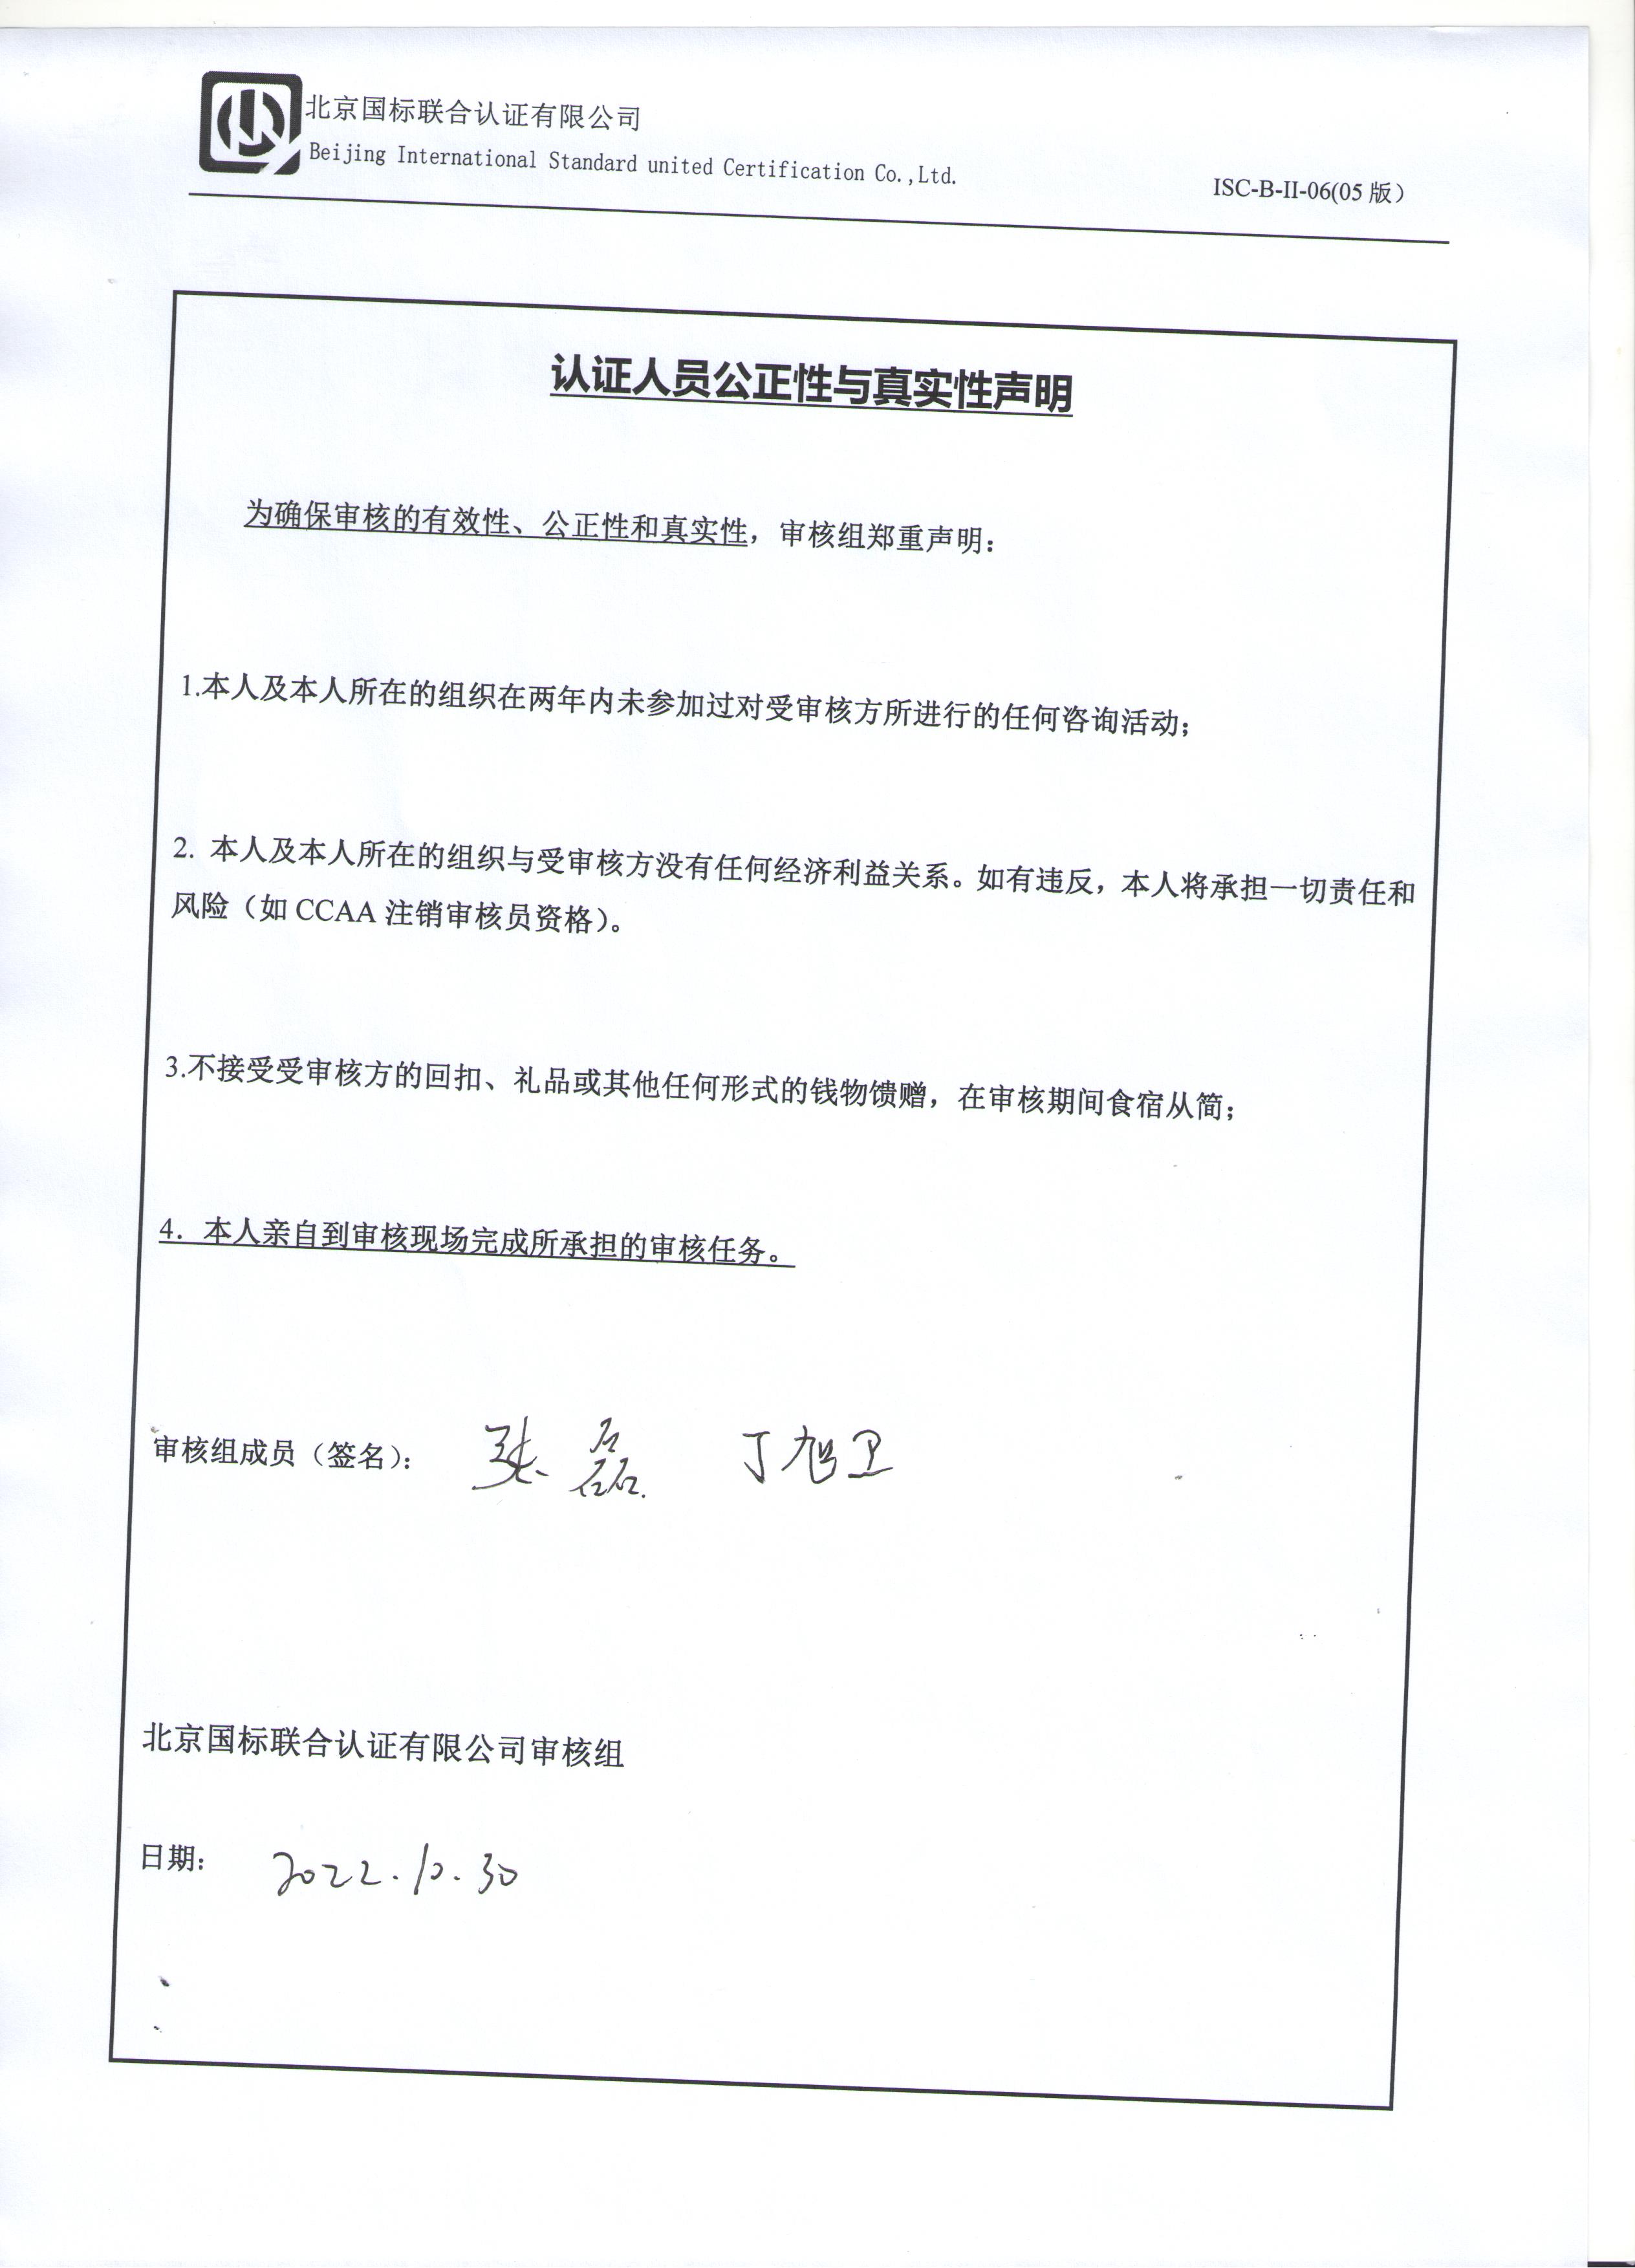 北京国标联合认证有限公司
Beijing International Standard united Certification Co.,Ltd.
ISC-B-II-06(05 版）
认证人员公正性与真实性声明
为确保审核的有效性、公正性和真实性，审核组郑重声明：
1.本人及本人所在的组织在两年内未参加过对受审核方所进行的任何咨询活动；
2. 本人及本人所在的组织与受审核方没有任何经济利益关系。如有违反，本人将承担一切责任和
风险（如 CCAA 注销审核员资格）。
3.不接受受审核方的回扣、礼品或其他任何形式的钱物馈赠，在审核期间食宿从简；
4. 本人亲自到审核现场完成所承担的审核任务。
审核组成员（签名）： 张磊 丁旭卫
北京国标联合认证有限公司审核组
日期： 2022.10.30